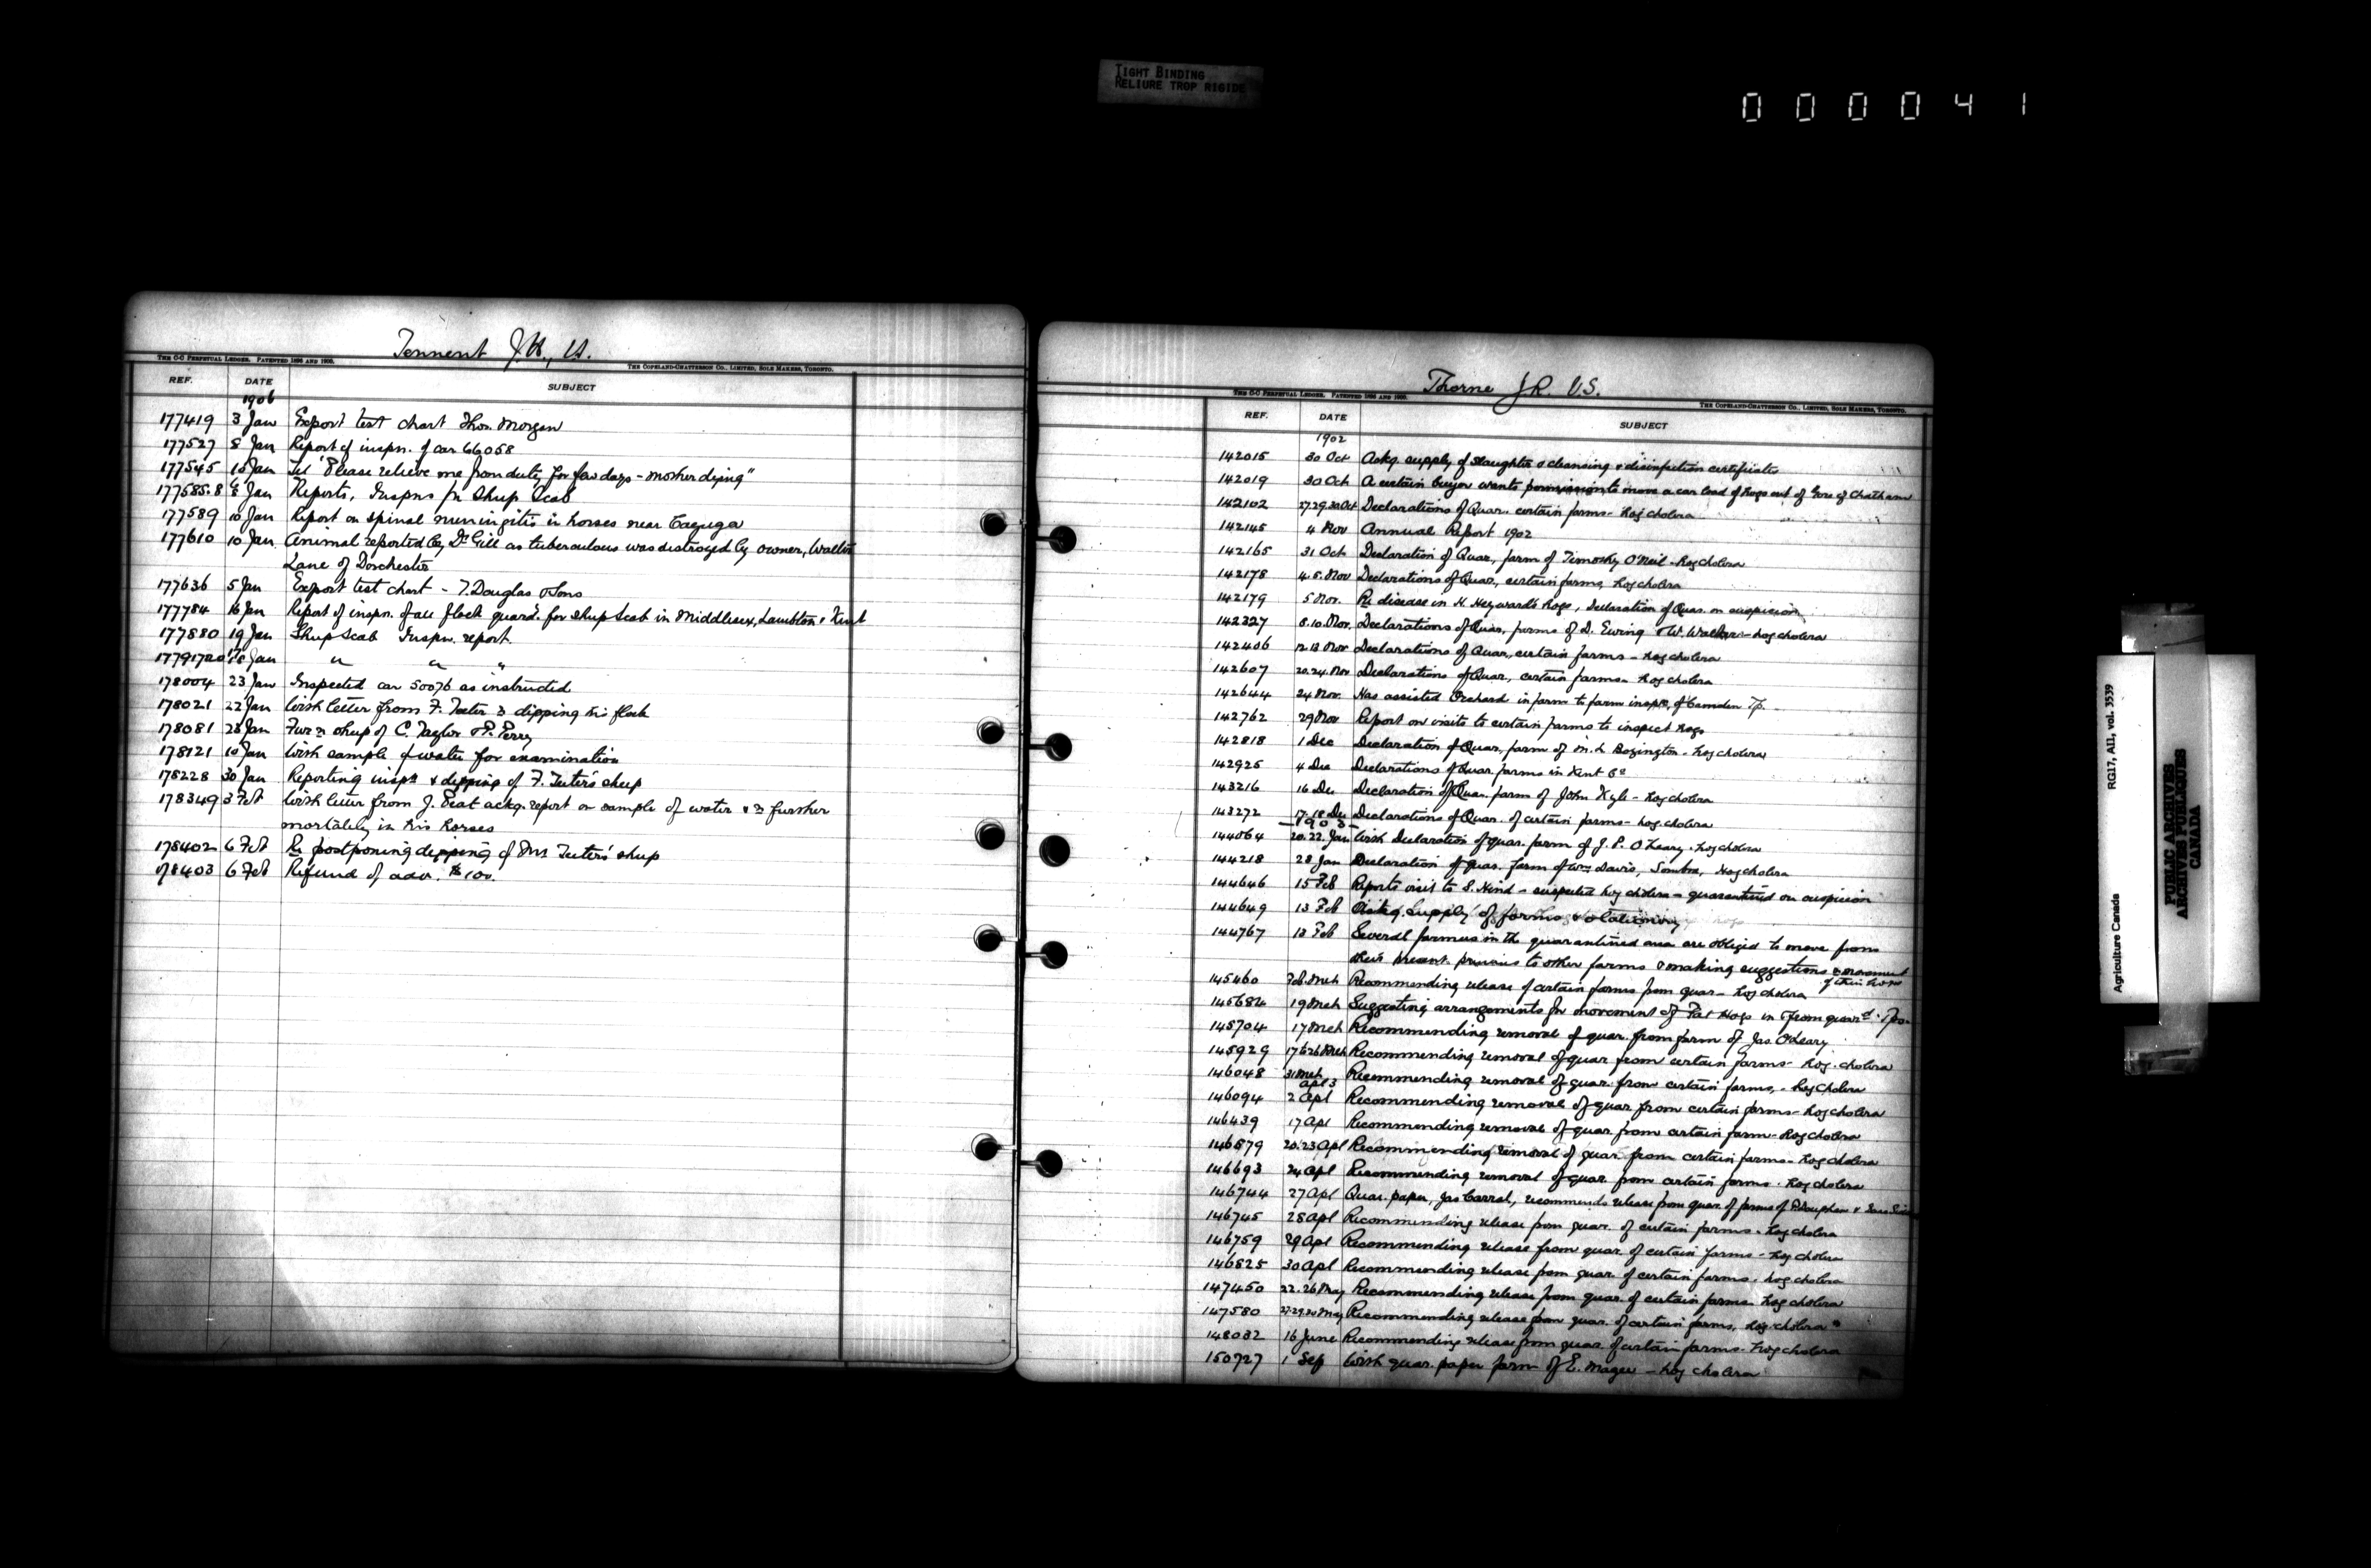 TIGHT BINDING
RELIURE TROP RIGIDE
000041
Tennent J.H., V.S.
THE C-C PERPETUAL LEDGER. PATENTED 1895 AND 1900. THE COPELAND-CHATTERSON CO., LIMITED, SOLE MAKERS, TORONTO.
REF. DATE SUBJECT
1906
177419 3 Jan Export test chart Thos. Morgan
177527 8 Jan Report of inspn. of car 66058
177545 10 Jan Tel "Please relieve me from duty for few days - mother dying"
177585.8 8 Jan Reports, Inspns for Sheep Scab
177589 10 Jan Report on spinal meningitis in horses near Cayuga
177610 10 Jan. Animal reported by Dr Gill as tuberculous was destroyed by owner, Walter
Lane of Dorchester
177636 5 Jan Export test chart - T. Douglas & Sons
177784 16 Jan Report of inspn. of all flock quard. for Sheep Scab in Middlesex, Lambton & Kent
177880 19 Jan Sheep Scab Inspn. report.
17791720 18 Jan " " "
178004 23 Jan Inspected car 50076 as instructed
178021 22 Jan With letter from F. Teeter re dipping his flock
178081 28 Jan Fur re sheep of C. Taylor & P. Perry
178121 10 Jan With sample of water for examination
178228 30 Jan Reporting inspn & dipping of F. Teeter's sheep
178349 3 Feb With letter from J. Peat ackg. report on sample of water & re further
mortality in his horses
178402 6 Feb Re postponing dipping of Mr Teeters' sheep
178403 6 Feb Refund of adv. $100.
Thorne J.R. V.S.
THE C-C PERPETUAL LEDGER. PATENTED 1895 AND 1900. THE COPELAND-CHATTERSON CO., LIMITED, SOLE MAKERS, TORONTO.
REF. DATE SUBJECT
1902
142015 30 Oct Ackg. supply of slaughter & cleansing & disinfection certificates
142019 30 Oct A certain buyer wants permission to move a car load of hogs out of Gore of Chatham
142102 27.29.30 Oct Declarations of Quar. certain farms - hog cholera
142145 4 Nov Annual Report 1902
142165 31 Oct Declaration of Quar., farm of Timothy O'Neil - hog cholera
142178 4.5. Nov Declarations of Quar., certain farms, hog cholera
142179 5 Nov. Re disease in H. Heyward's hogs, Declaration of Quar. on suspicion
142327 8.10. Nov. Declarations of Quar, farms of D. Ewing & W. Walker - hog cholera
142406 12.13 Nov Declarations of Quar., certain farms - hog cholera
142607 20.24. Nov Declarations of Quar, certain farms - hog cholera
142644 24 Nov. Has assisted Orchard in farm to farm inspn. of Camden Tp.
142762 29 Nov Report on visits to certain farms to inspect hogs
142818 1 Dec Declaration of Quar., farm of M. L Bozington - hog cholera
142925 4 Dec Declarations of Quar. farms in Kent Co
143216 16 Dec Declaration of Quar. farm of John Kyle - hog cholera
143272 17.18 Dec Declarations of Quar. of certain farms - hog cholera
1903
144064 20.22. Jan With Declaration of quar. farm of J. P. O'Leary - hog cholera
144218 28 Jan Declaration of quar. farm of Wm Davis, Sombra, Hog cholera
144646 15 Feb Reports visit to S. Hind - suspected hog cholera - quarantined on suspicion
144649 13 Feb Ackg. Supply of forms & stationery
144767 18 Feb Several farmers in the quarantined area are obliged to move from
their present premises to other farms & making suggestions re movement
of their hogs
145460 Feb. Mch Recommending release of certain farms from quar - hog cholera
145682 19 Mch Suggesting arrangements for movement of Fat Hogs in & from quard. Tps.
145704 17 Mch Recommending removal of quar. from farm of Jas. O'Leary
145929 17 & 26 Mch Recommending removal of quar from certain farms - hog cholera
146048 31 Mch Apl 3 Recommending removal of quar. from certain farms, - hog cholera
146094 2 Apl Recommending removal of quar from certain farms - hog cholera
146439 17 Apl Recommending removal of quar. from certain farm - hog cholera
146579 20.23 Apl Recommending removal of quar. from certain farms - hog cholera
146693 24 Apl Recommending removal of quar. from certain farms - hog cholera
146744 27 Apl Quar. paper, Jas Carral, recommends release from quar. of farms of
146745 28 Apl Recommending release from quar. of certain farms - hog cholera
146759 29 Apl Recommending release from quar. of certain farms - hog cholera
146825 30 Apl Recommending release from quar. of certain farms - hog cholera
147450 22.26 May Recommending release from quar. of certain farms - hog cholera
147580 27.29.30 May Recommending release from quar. of certain farms, hog cholera
148032 16 June Recommending release from quar. of certain farms - hog cholera
150727 1 Sep With quar. paper farm of E. Magee - hog cholera
Agriculture Canada RG17, A11, vol. 3539
PUBLIC ARCHIVES
ARCHIVES PUBLIQUES
CANADA